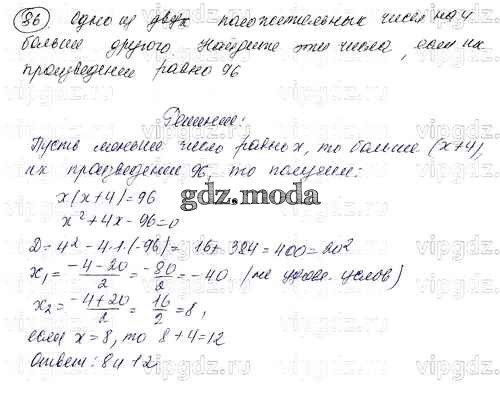 36. Одно из двух положительных чисел на 4
больше другого. Найдите эти числа, если их
произведение равно 96
Решение:
Пусть меньшее число равно x, то больше (x+4),
их произведение 96, то получаем:
x(x+4)=96
gdz.moda
x²+4x-96=0
D=4²-4·1·(-96)= 16+384=400=20²
x₁= (-4-20)/2 = -80/2 = -40 (не удов. услов)
x₂= (-4+20)/2 = 16/2 = 8,
если x=8, то 8+4=12
Ответ: 8 и 12
vipgdz.com